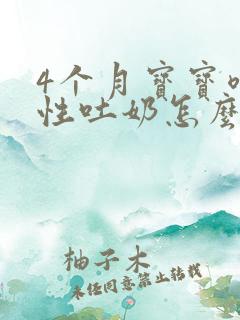 4个月寶寶
性吐奶怎麼
柚子木
未经同意禁止转载